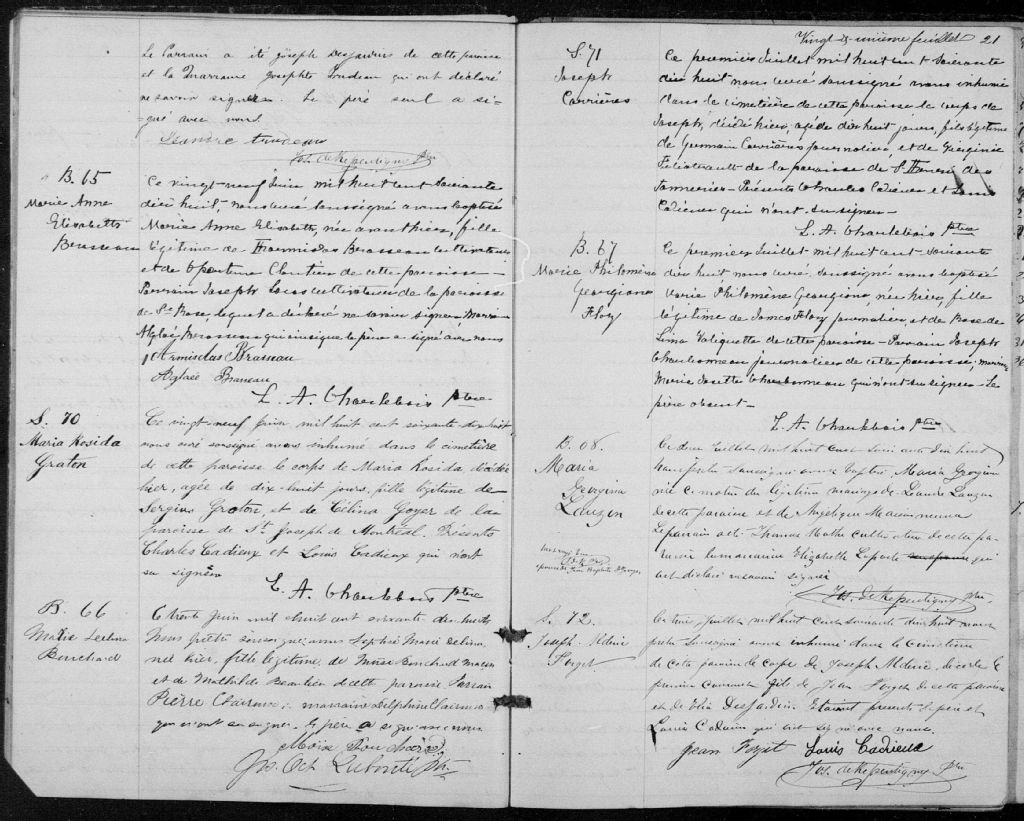 Le Parrain a été Joseph Desjardins de cette paroisse
et la Marraine Josephte Trudeau qui ont déclaré
ne savoir signer. Le père seul a si-
gné avec nous.
Leandre trudeau
Jos. de Repentigny Ptre
B. 65
Marie Anne
Elisabeth
Brasseau
Ce vingt-neuf Juin mil huit cent soixante
dix huit, nous curé soussigné avons baptisé
Marie Anne Elisabeth, née avant hier, fille
légitime de Hormisdas Brasseau cultivateur
et de Cloutier de cette paroisse —
Parrain Joseph Lous cultivateur de la paroisse
de Ste Rose, lequel a déclaré ne savoir signer Marraine
Aglaé Brasseau qui ainsi que le père a signé avec nous
Armisdas Brasseau
Aglaée Brasseau
L. A. Charlebois Ptre
S. 70
Maria Rosida
Graton
Ce vingt-neuf Juin mil huit cent soixante dix huit
nous curé soussigné avons inhumé dans le cimetière
de cette paroisse le corps de Maria Rosida, décédée
hier, agée de dix-huit jours, fille légitime de
Sergius Graton, et de Célina Goyer de la
paroisse de St. Joseph de Montréal. Présents
Charles Cadieux et Louis Cadieux qui n'ont
su signer
L. A. Charlebois Ptre
B. 66
Marie Delina
Bouchard
Ce trente Juin mil huit cent soixante dix huit
Nous prêtre soussigné avons baptisé Marie Delina
née hier, fille légitime de Moise Bouchard
et de Mathilde Beaulieu de cette paroisse Parrain
Pierre Clairmon; marraine Delphine Clairmon
qui n'ont su signer. Le père a signé avec nous
Moise Bouchard
Jos. Oct Ptre
Vingt & unième feuillet 21
S. 71
Joseph
Carrières
Ce premier Juillet mil huit cent soixante
dix huit nous curé soussigné avons inhumé
dans le cimetière de cette paroisse le corps de
Joseph, décédé hier, agé de dix huit jours, fils légitime
de Germain Carrières journalier, et de Virginie
Filiatrault de la paroisse de St. Henri des
Tanneries — Présents Charles Cadieux et Louis
Cadieux qui n'ont su signer —
L. A. Charlebois Ptre
B. 67
Marie Philomène
Georgiana
Floy
Ce premier Juillet mil huit cent soixante
dix huit nous curé soussigné avons baptisé
Marie Philomène Georgiana, née hier, fille
légitime de James Floy journalier, et de Rose de
Lima Valiquette de cette paroisse — Parrain Joseph
Charbonneau journalier de cette paroisse; marraine
Marie Josette Charbonneau qui n'ont su signer — Le
père absent —
L. A. Charlebois Ptre
B. 68.
Maria
Georgina
Lauzon
Ce deux Juillet mil huit cent soixante dix huit
nous prêtre soussigné avons baptisé Maria Georgina
née ce matin du légitime mariage de Léandre Lauzon
de cette paroisse et de Angélique
Le parrain a été Thomas cultivateur de cette pa-
roisse la marraine Elizabeth Laporte qui
ont déclaré ne savoir signer
Jos. de Repentigny Ptre
S. 72.
Joseph Aldéric
Forget
Ce trois, Juillet mil huit cent soixante dix huit nous
prêtre soussigné avons inhumé dans le cimetière
de cette paroisse le corps de Joseph Aldéric, décédé le
premier courant fils de Jean Forget de cette paroisse
et de Elia Desjardins. Etaient présents le père et
Louis Cadieux qui ont signé avec nous.
Jean Forget Louis Cadieux
Jos. de Repentigny Ptre